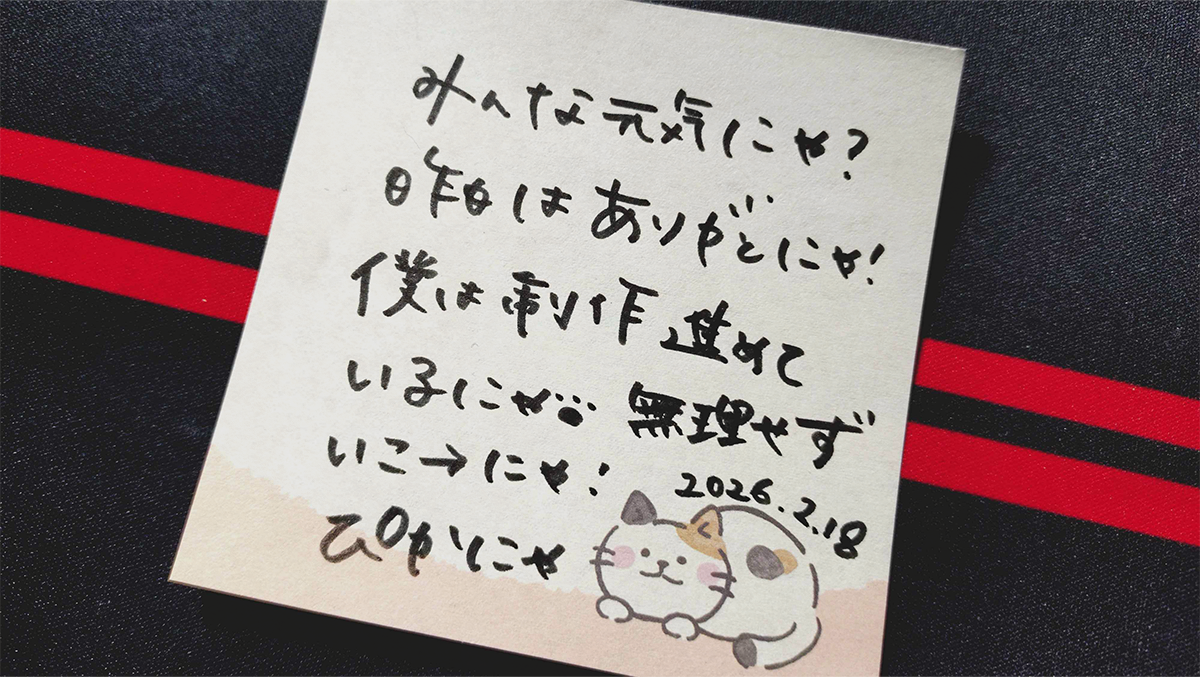 みんな元気にゃ?
昨日はありがとにゃ!
僕は制作進めて
いるにゃ🐾 無理せず
いこーにゃ!
2026.2.18
ぴかりにゃ